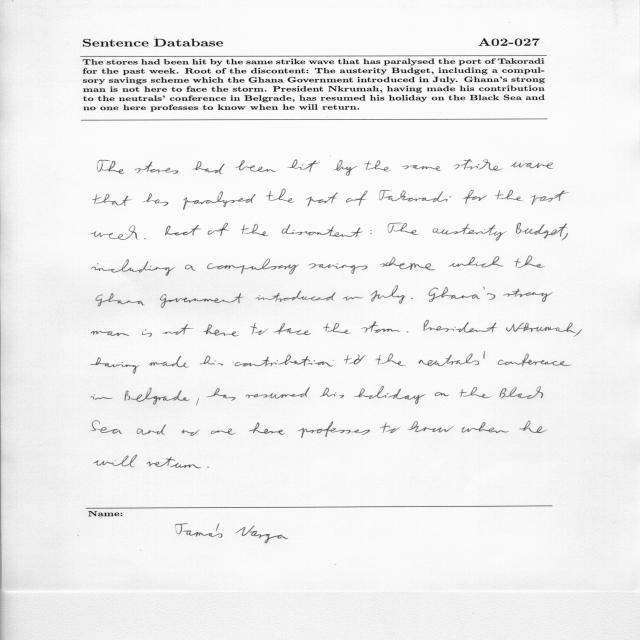 Sentence Database A02-027
The stores had been hit by the same strike wave that has paralysed the port of Takoradi
for the past week. Root of the discontent: The austerity Budget, including a compul-
sory savings scheme which the Ghana Government introduced in July. Ghana's strong
man is not here to face the storm. President Nkrumah, having made his contribution
to the neutrals' conference in Belgrade, has resumed his holiday on the Black Sea and
no one here professes to know when he will return.
The stores had been hit by the same strike wave
that has paralysed the port of Takoradi for the past
week. Root of the discontent: The austerity Budget,
including a compulsory savings sheme which the
Ghana Government introduced in July. Ghana's strong
man is not here to face the storm. President Nkrumah,
having made his contribution to the neutrals' conference
in Belgrade, has resumed his holiday on the Black
Sea and no one here professes to know when he
will return.
Name:
Tamás Varga